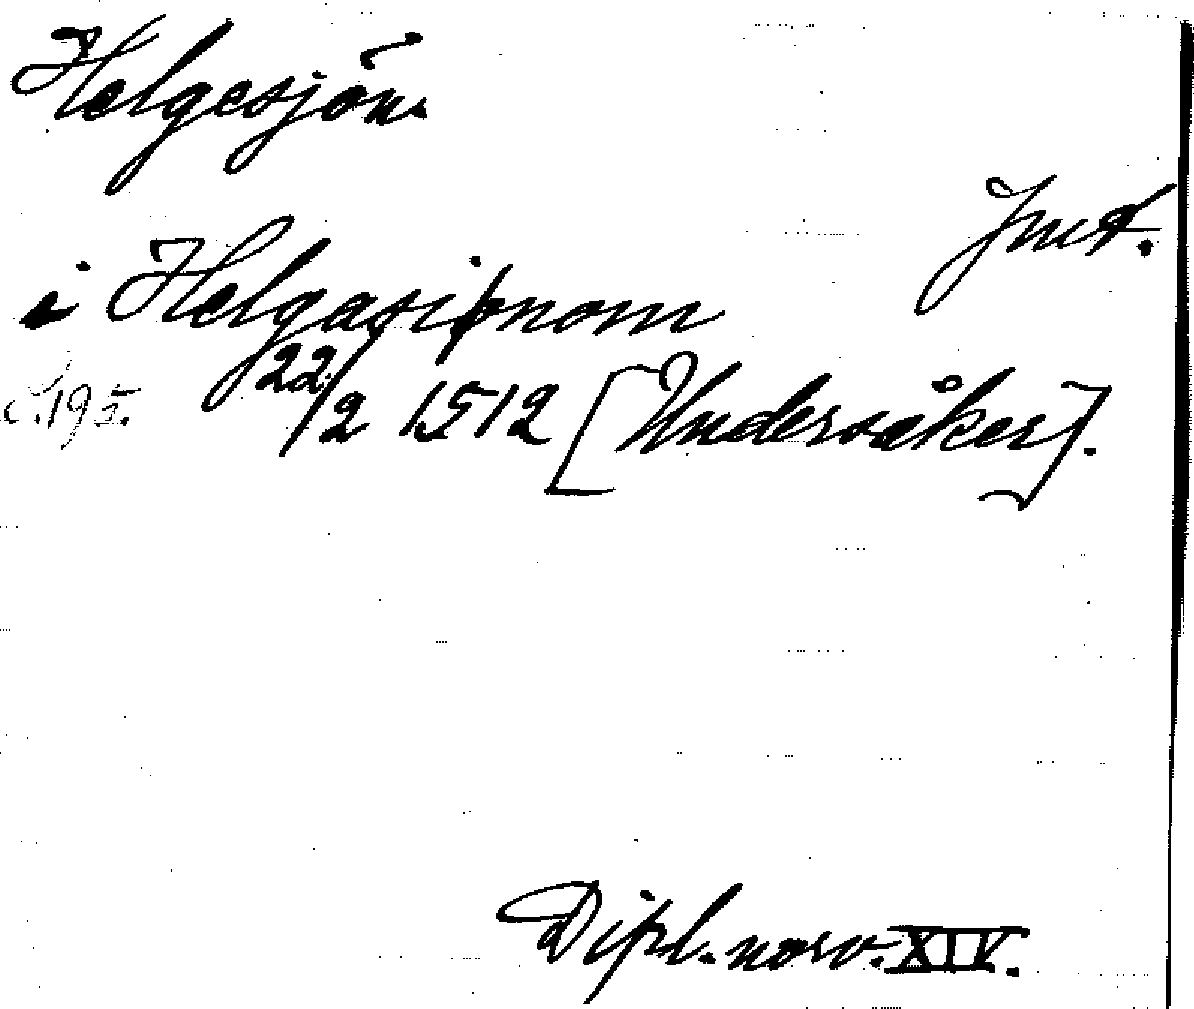 Helgesjön.
Jmt.
i Helgasiønom
s. 195. 22/2 1512 [Undersåker].
Dipl. norv. XIV.